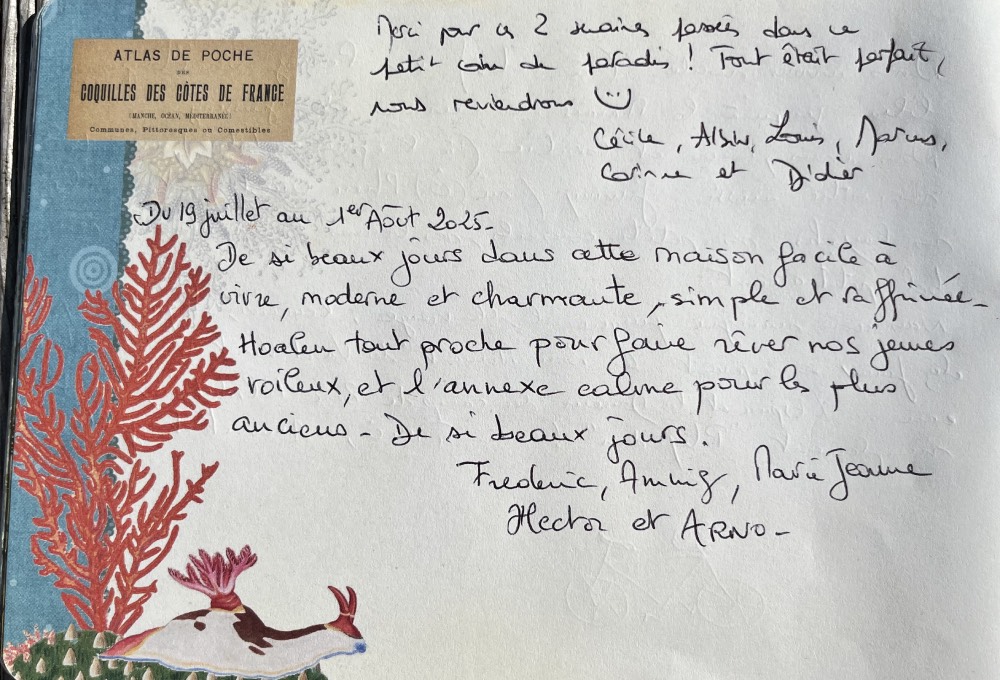 ATLAS DE POCHE
DES
COQUILLES DES CÔTES DE FRANCE
(MANCHE, OCÉAN, MÉDITERRANÉE)
Communes, Pittoresques ou Comestibles
Merci par ces 2 semaines passées dans ce
petit coin de paradis ! Tout était parfait,
nous reviendrons
Cécile, Louis, Marius,
Corinne et Didier
Du 19 juillet au 1er Août 2025-
De si beaux jours dans cette maison facile à
vivre, moderne et charmante, simple et raffinée-
Hoalen tout proche pour faire rêver nos jeunes
voileux, et l'annexe calme pour les plus
anciens - De si beaux jours.
Frederic, Marie Jeanne
Hector et ARNO-